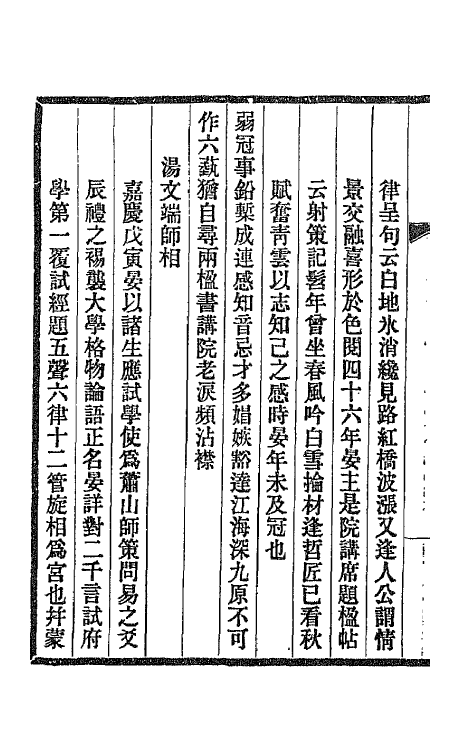 律呈句云白地氷消纔見路紅橋波漲又逢人公謂情
景交融喜形於色閱四十六年晏主是院講席題楹帖
云射策記髫年曾坐春風吟白雪掄材逢哲匠已看秋
賦奮靑雲以志知己之感時晏年未及冠也
弱冠事鉛槧成連感知音忌才多娼嫉豁達江海深九原不可
作六蓺猶自尋兩楹書講院老淚頻沾襟
湯文端師相
嘉慶戊寅晏以諸生應試學使爲蕭山師策問易之爻
辰禮之裼襲大學格物論語正名晏詳對二千言試府
學第一覆試經題五聲六律十二管旋相爲宮也幷蒙